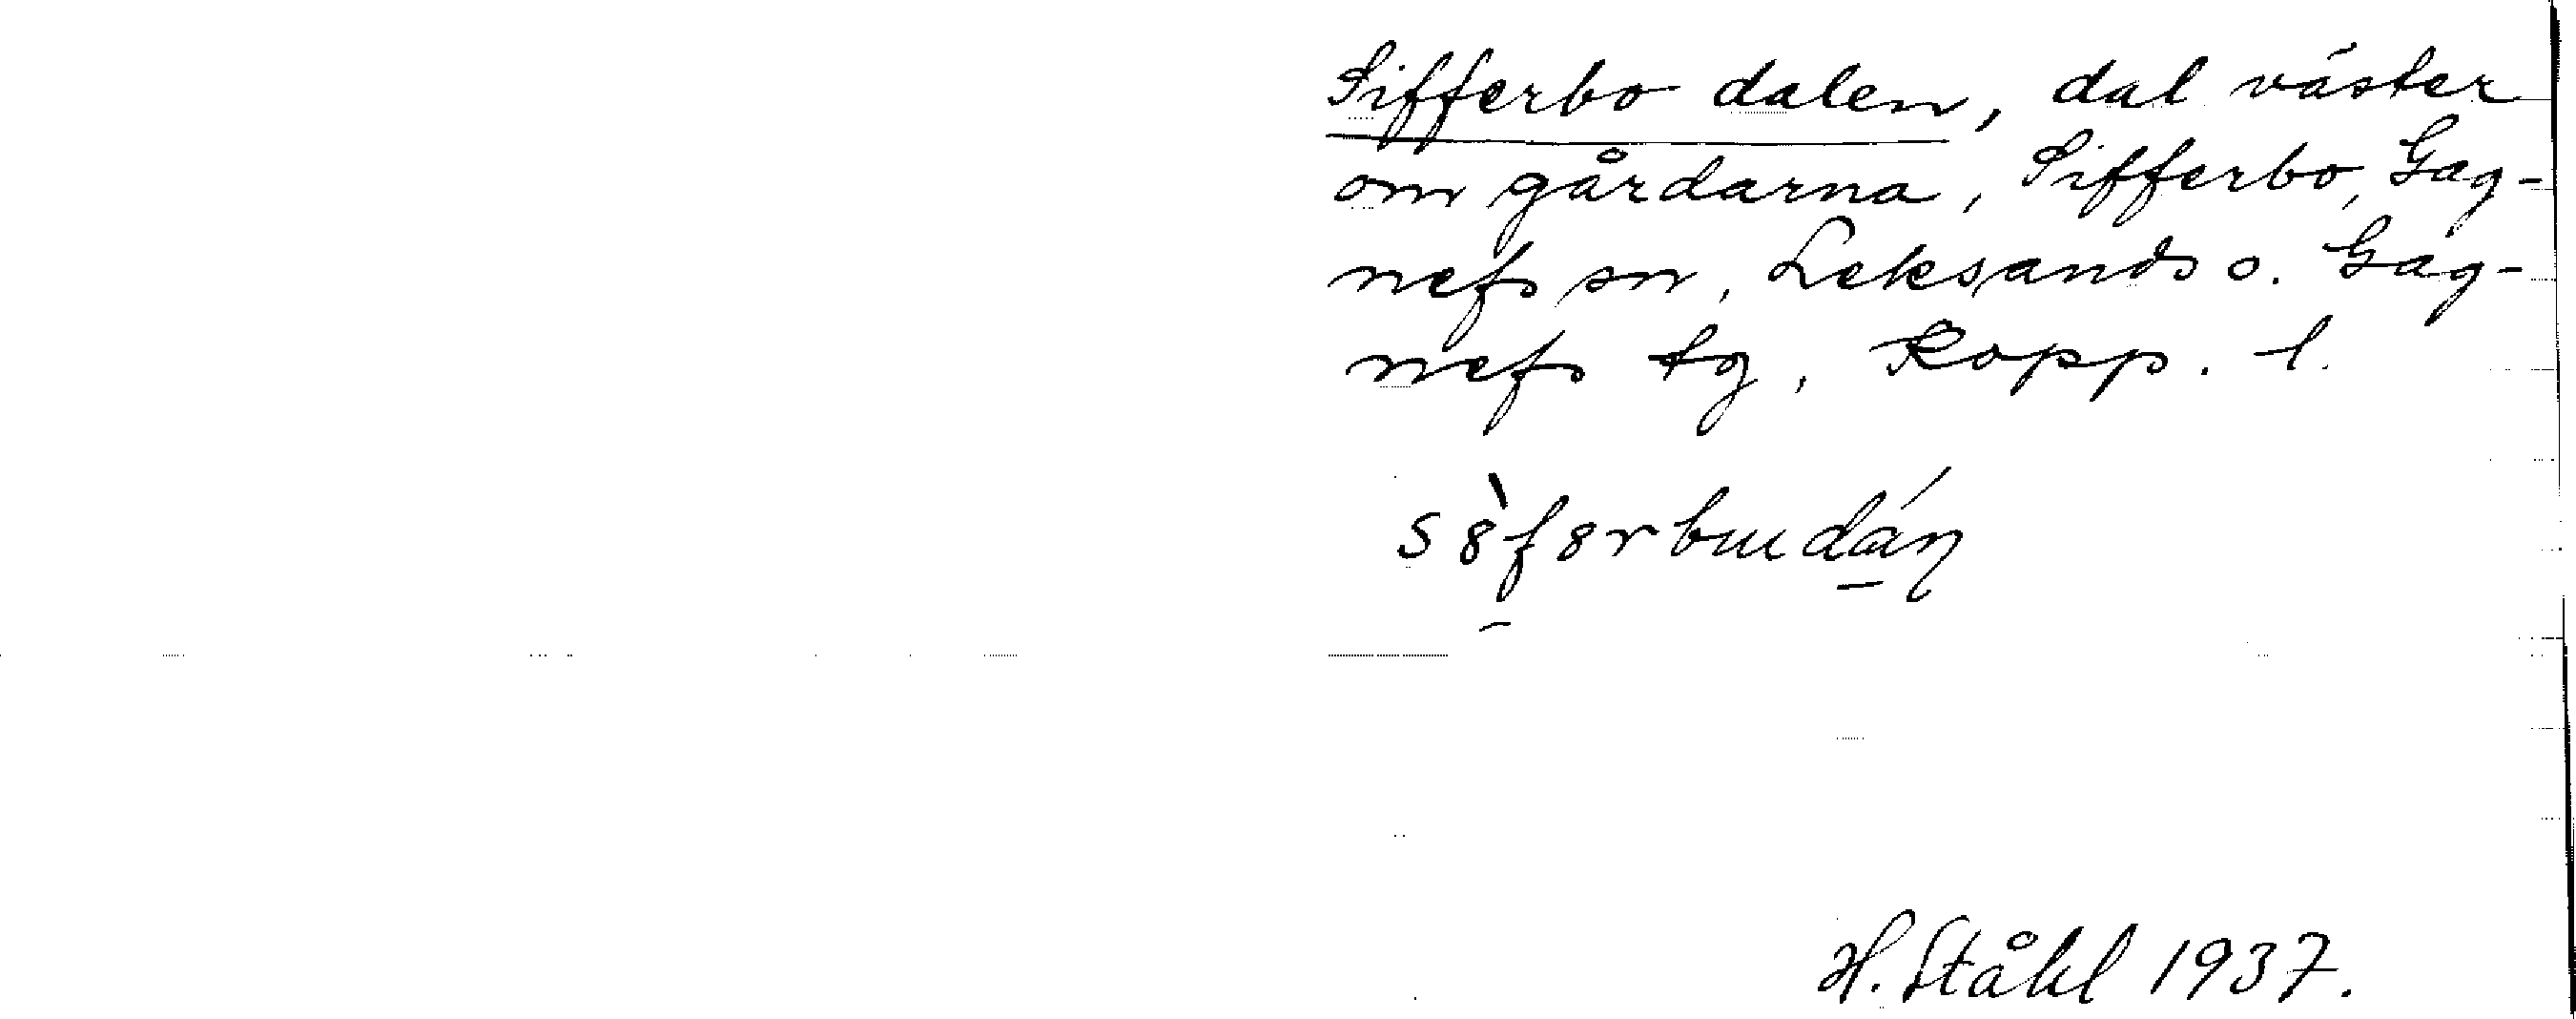 Sifferbo dalen, dal väster
om gårdarna, Sifferbo, Gag-
nefs sn, Leksands o. Gag-
nefs tg, Kopp. l.
H. Ståhl 1937.